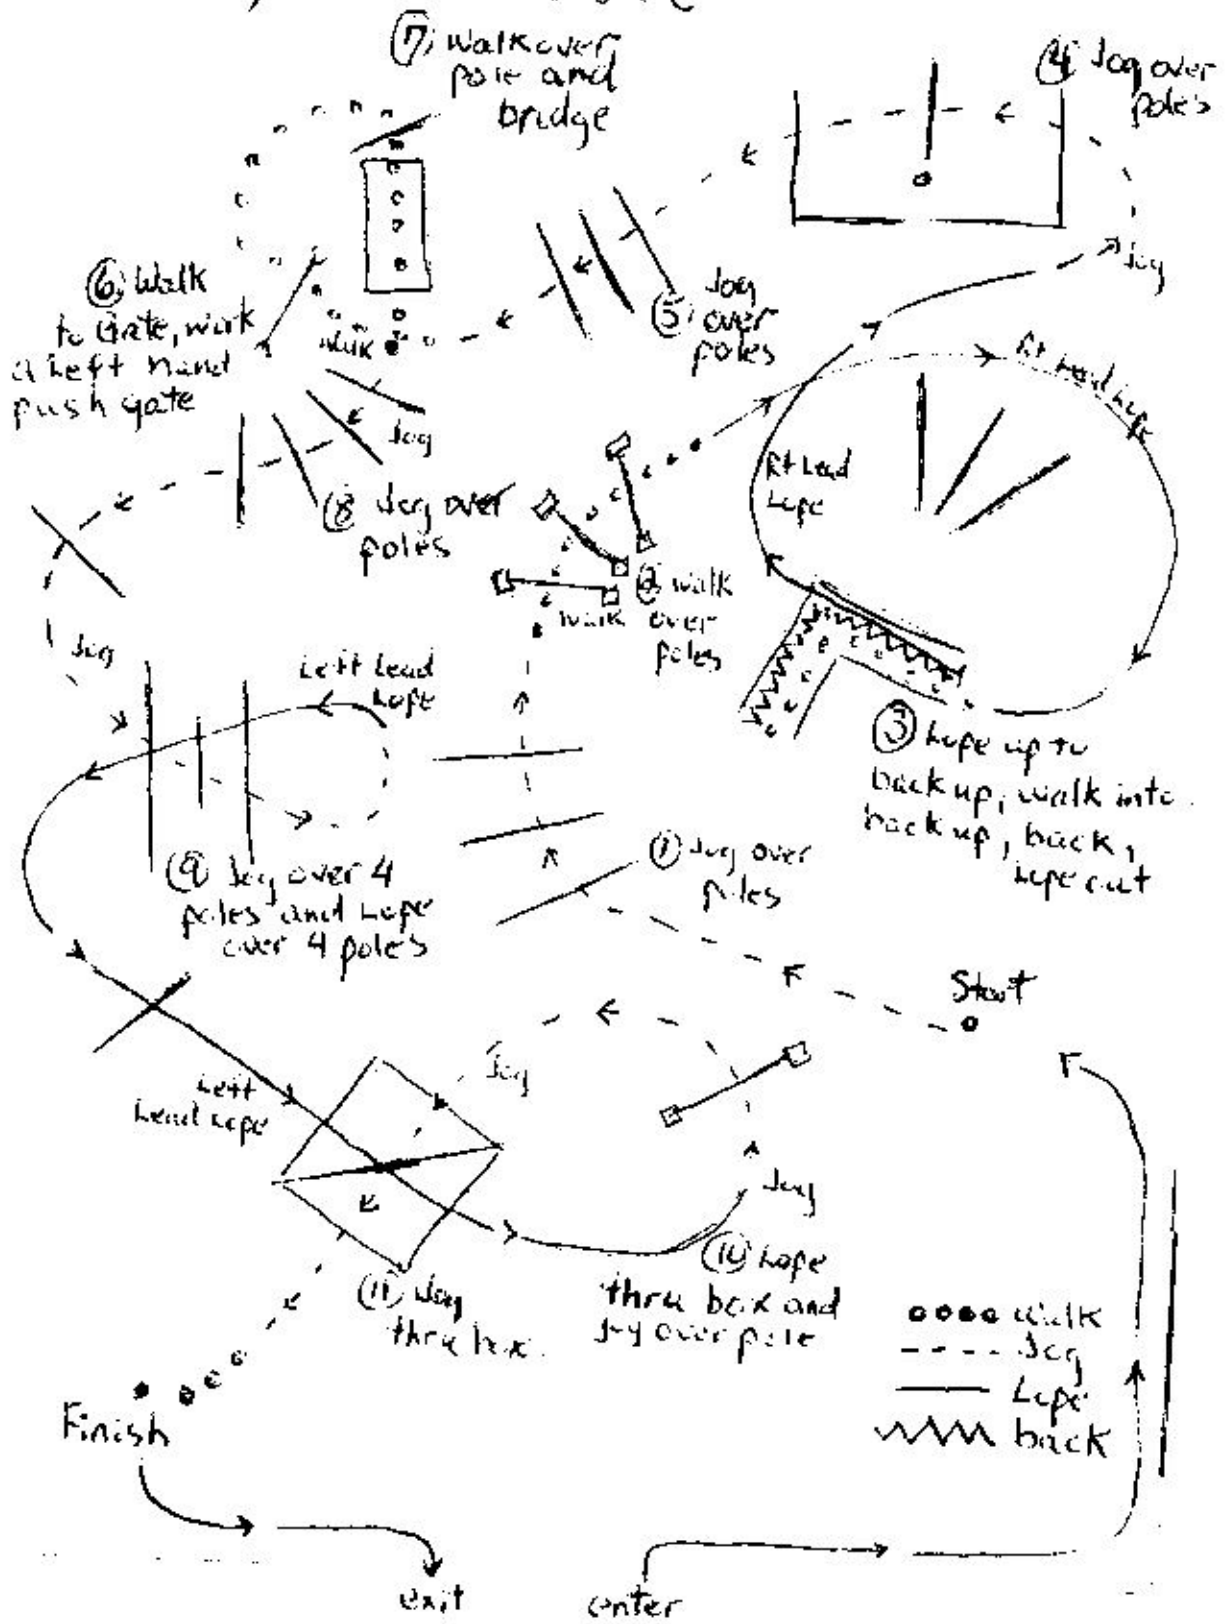 ⑦ Walk over
pole and
bridge
④ Jog over
poles
Jog
⑥ Walk
to Gate, work
a Left hand
push gate
Walk
⑤ Jog
over
poles
Rt Lead Lope
Rt Lead
Lope
Jog
⑧ Jog over
poles
② Walk
over
poles
Walk
Jog
Left Lead
Lope
③ Lope up to
back up, walk into
back up, back,
Lope out
① Jog over
poles
⑨ Jog over 4
poles and Lope
over 4 poles
Start
Jog
Left
Lead Lope
Jog
⑩ Lope
thru box and
Jog over pole
⑪ Jog
thru box.
Walk
Jog
Lope
back
Finish
exit
enter